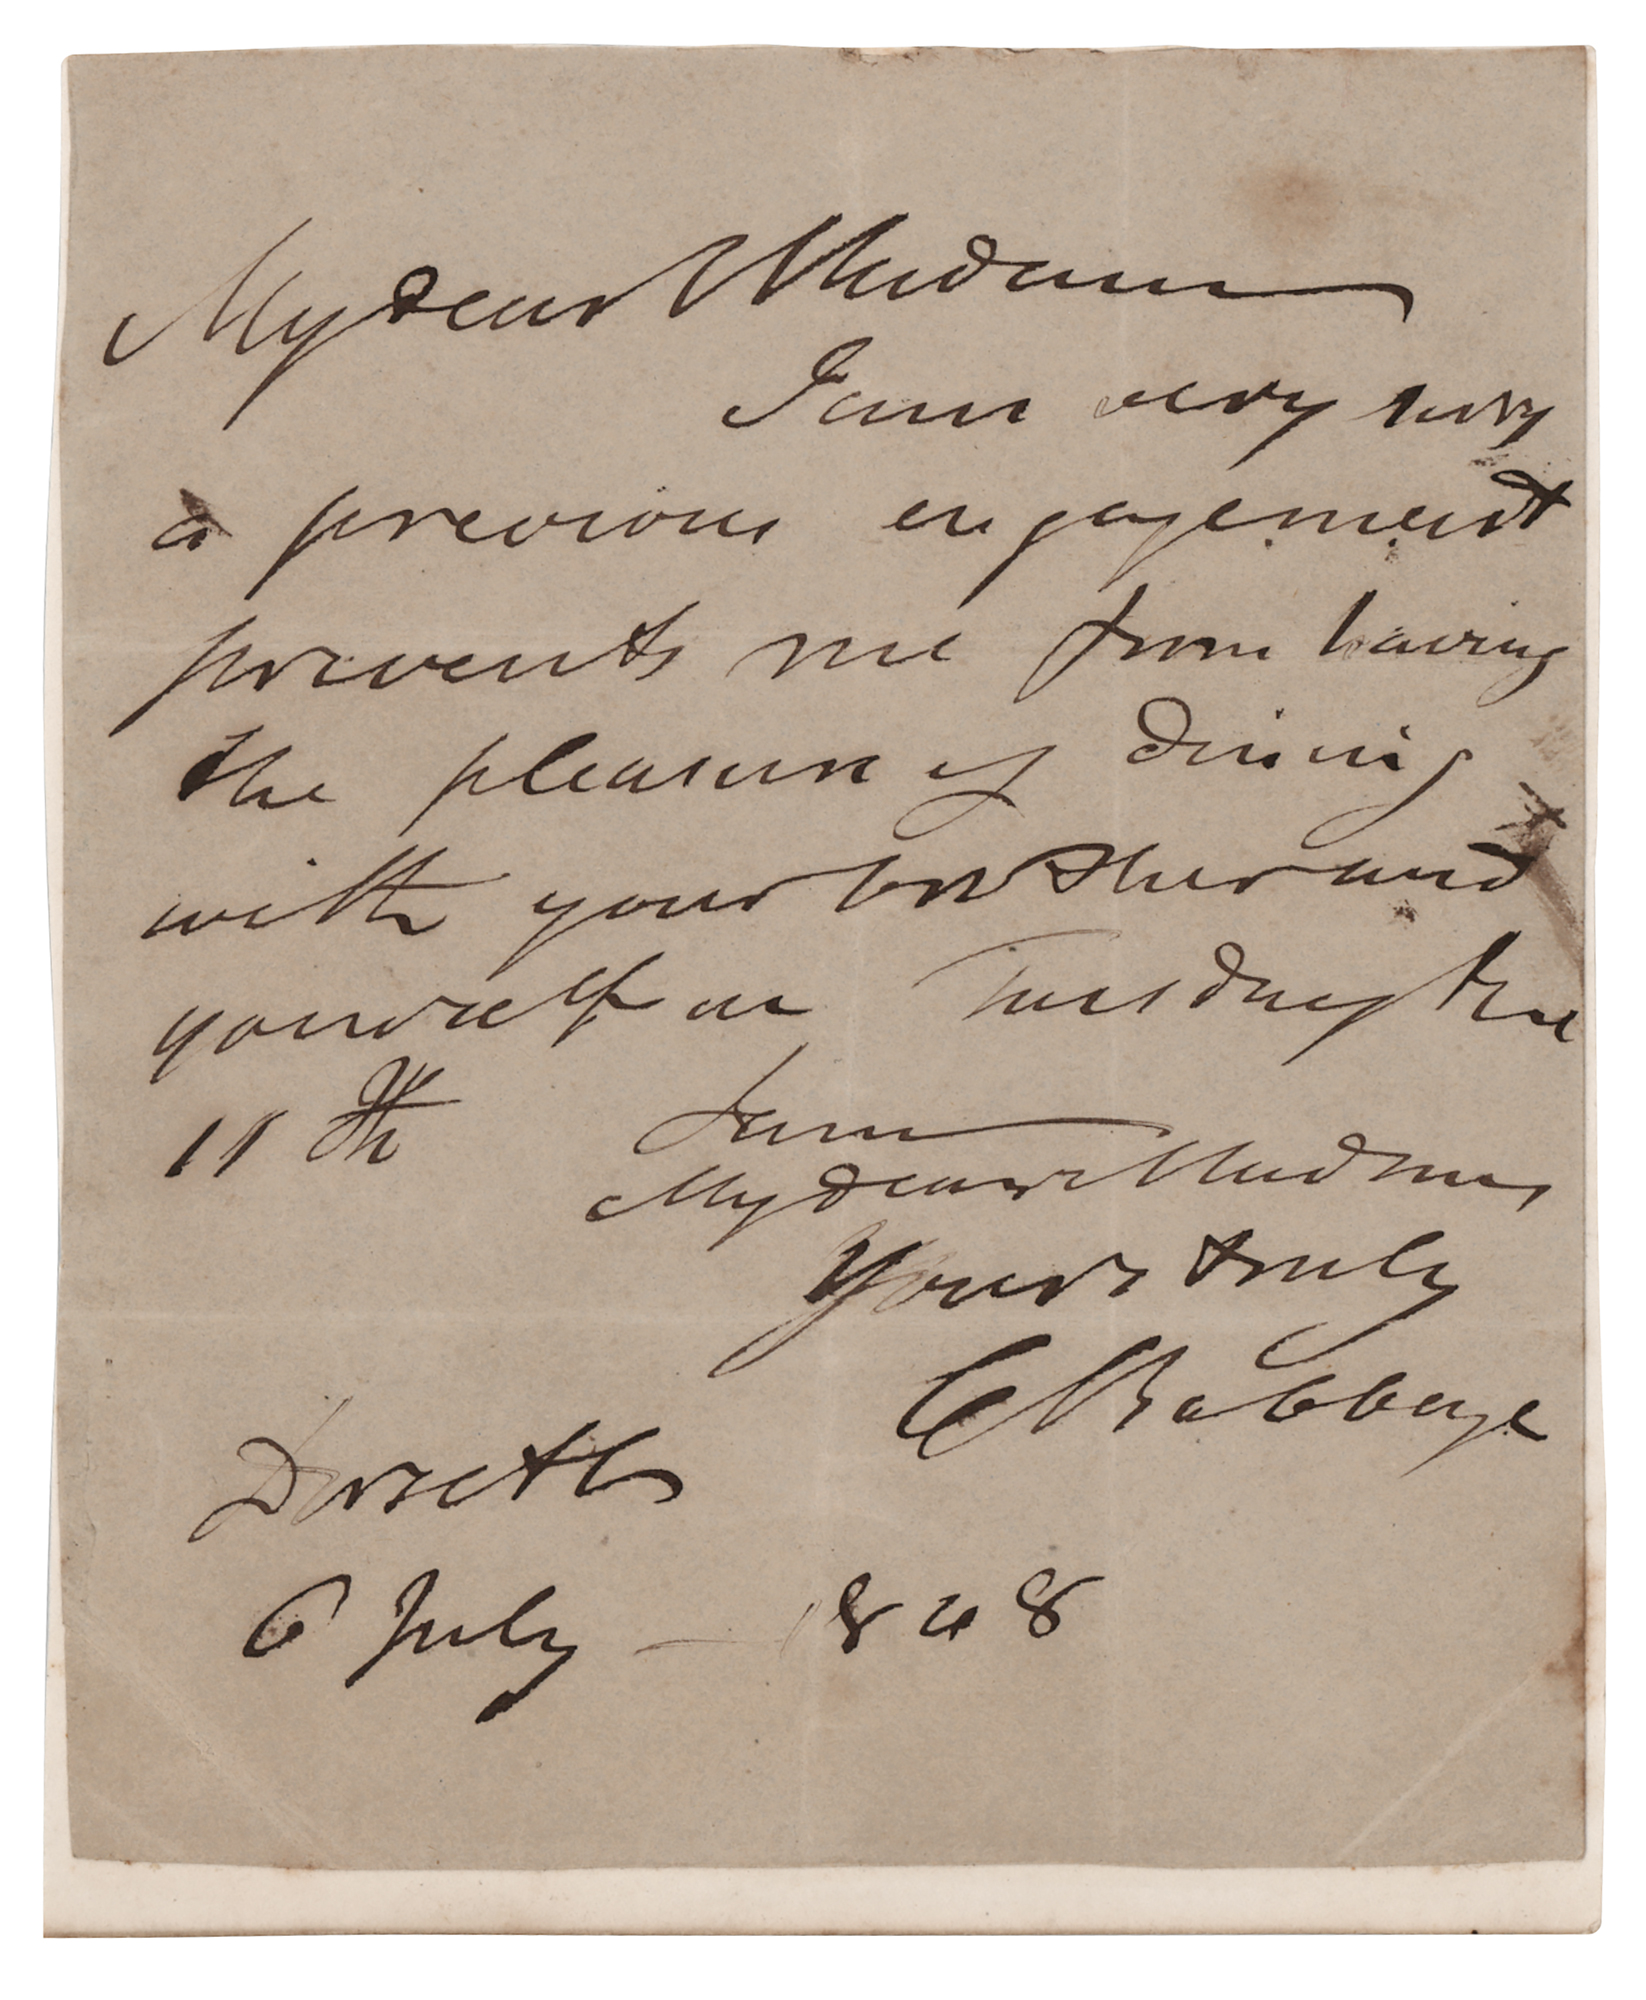 My dear Madam
I am very sorry
a previous engagement
prevents me from having
the pleasure of dining
with your brother and
yourself on Tuesday the
11th I am
My dear Madam
Yours truly
C Babbage
Dorset St
6 July 1848